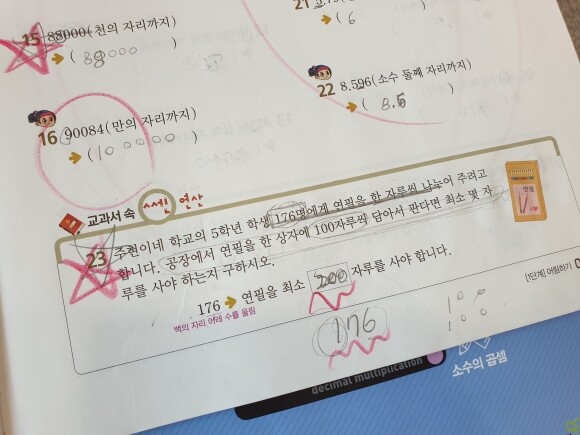 15 88000(천의 자리까지)
→ (88000)
16 90084(만의 자리까지)
→ (100000)
21
(6
22 8.596(소수 둘째 자리까지)
→ (8.5)
교과서 속 쓰쎈 연산
23 주현이네 학교의 5학년 학생 176명에게 연필을 한 자루씩 나누어 주려고
합니다. 공장에서 연필을 한 상자에 100자루씩 담아서 판다면 최소 몇 자
루를 사야 하는지 구하시오.
176 → 연필을 최소 200 자루를 사야 합니다.
백의 자리 아래 수를 올림
176
100
100
[1단계] 어림하기
decimal multiplication
소수의 곱셈